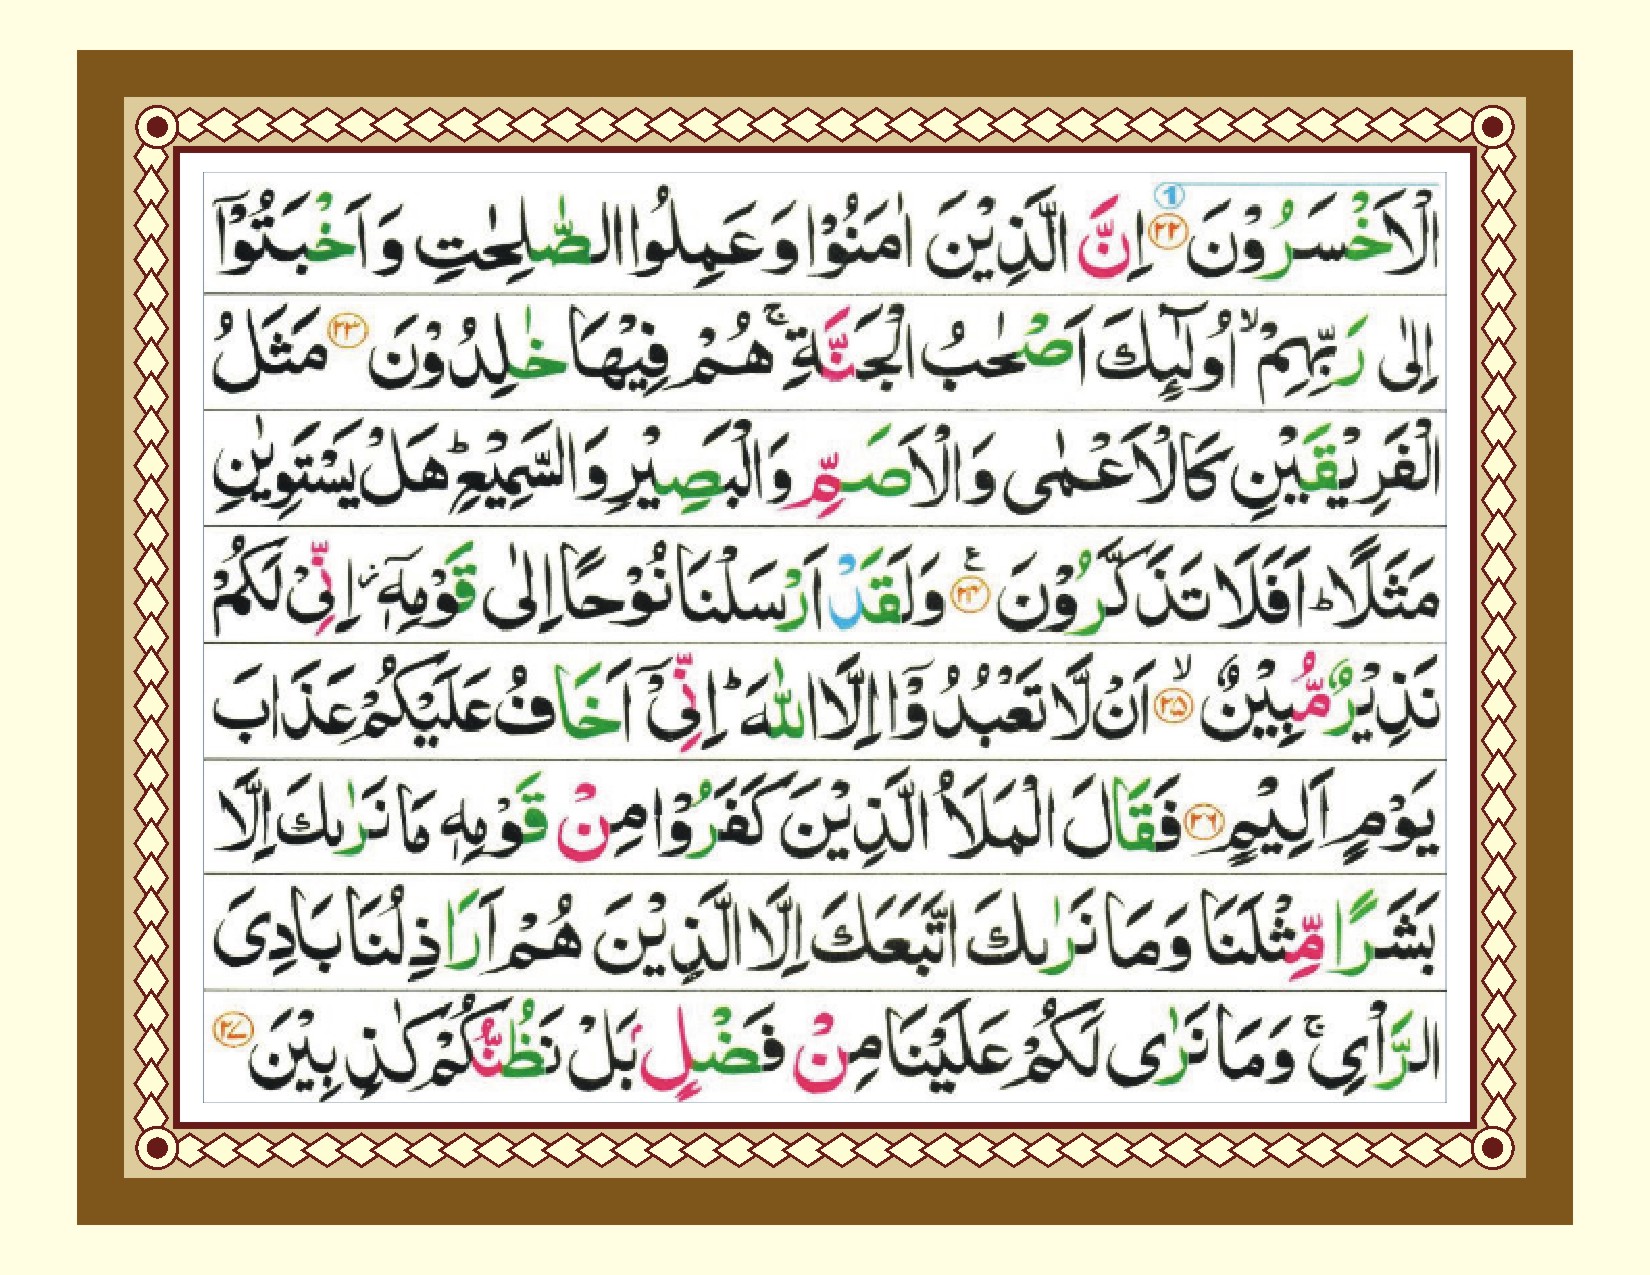 الْاَخْسَرُوْنَ ﴿۲۲﴾ 1 اِنَّ الَّذِيْنَ اٰمَنُوْا وَ عَمِلُوا الصّٰلِحٰتِ وَ اَخْبَتُوْۤا
اِلٰى رَبِّهِمْ ۙ اُولٰٓئِكَ اَصْحٰبُ الْجَنَّةِ ۚ هُمْ فِيْهَا خٰلِدُوْنَ ﴿۲۳﴾ مَثَلُ
الْفَرِيْقَيْنِ كَالْاَعْمٰى وَالْاَصَمِّ وَالْبَصِيْرِ وَالسَّمِيْعِ ؕ هَلْ يَسْتَوِيٰنِ
مَثَلًا ؕ اَفَلَا تَذَكَّرُوْنَ ﴿۲۴﴾ ع وَلَقَدْ اَرْسَلْنَا نُوْحًا اِلٰى قَوْمِهٖۤ ؗ اِنِّىْ لَكُمْ
نَذِيْرٌ مُّبِيْنٌ ﴿۲۵﴾ ۙ اَنْ لَّا تَعْبُدُوْۤا اِلَّا اللّٰهَ ؕ اِنِّىْۤ اَخَافُ عَلَيْكُمْ عَذَابَ
يَوْمٍ اَلِيْمٍ ﴿۲۶﴾ فَقَالَ الْمَلَاُ الَّذِيْنَ كَفَرُوْا مِنْ قَوْمِهٖ مَا نَرٰىكَ اِلَّا
بَشَرًا مِّثْلَنَا وَمَا نَرٰىكَ اتَّبَعَكَ اِلَّا الَّذِيْنَ هُمْ اَرَاذِلُنَا بَادِىَ
الرَّاْىِ ۚ وَمَا نَرٰى لَكُمْ عَلَيْنَا مِنْ فَضْلٍۢ بَلْ نَظُنُّكُمْ كٰذِبِيْنَ ﴿۲۷﴾